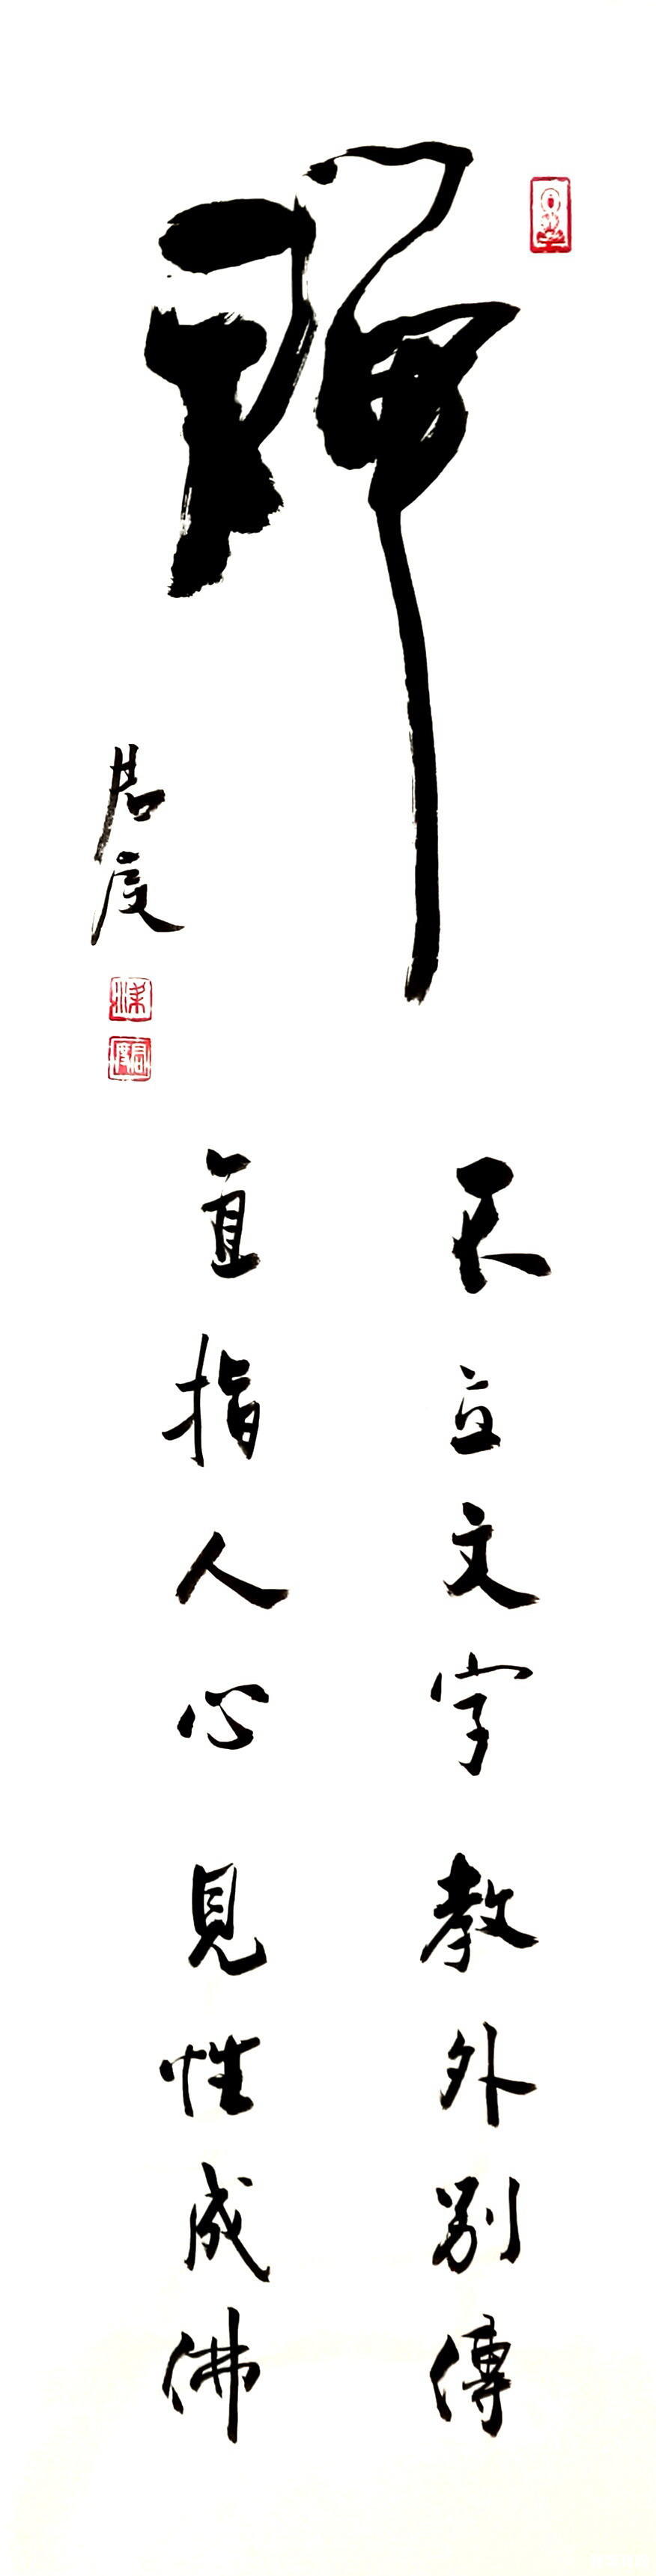 禪
不立文字 教外別傳
直指人心 見性成佛
君度